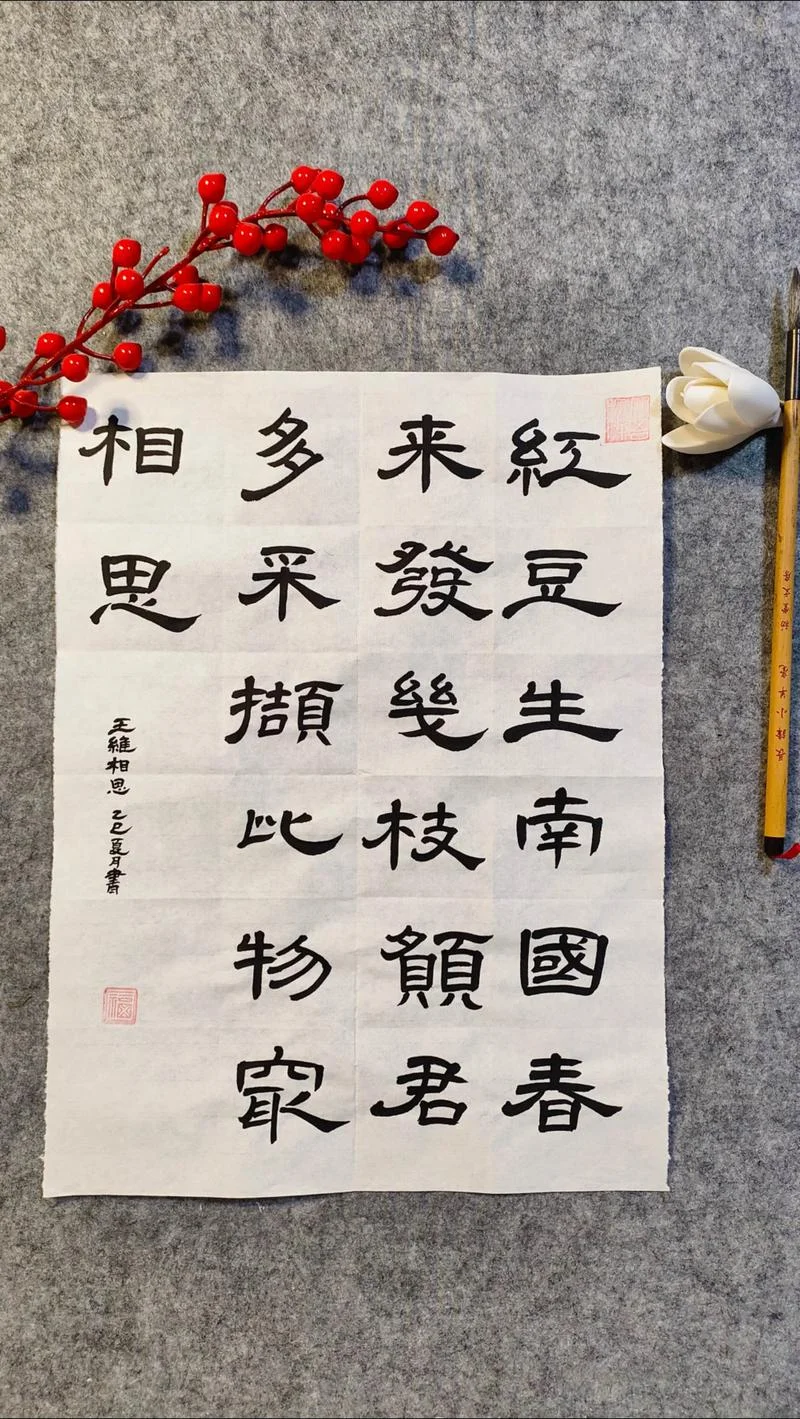 紅豆生南國春
来發幾枝願君
多采擷比物㝡
相思
王維相思 乙巳夏月書
福